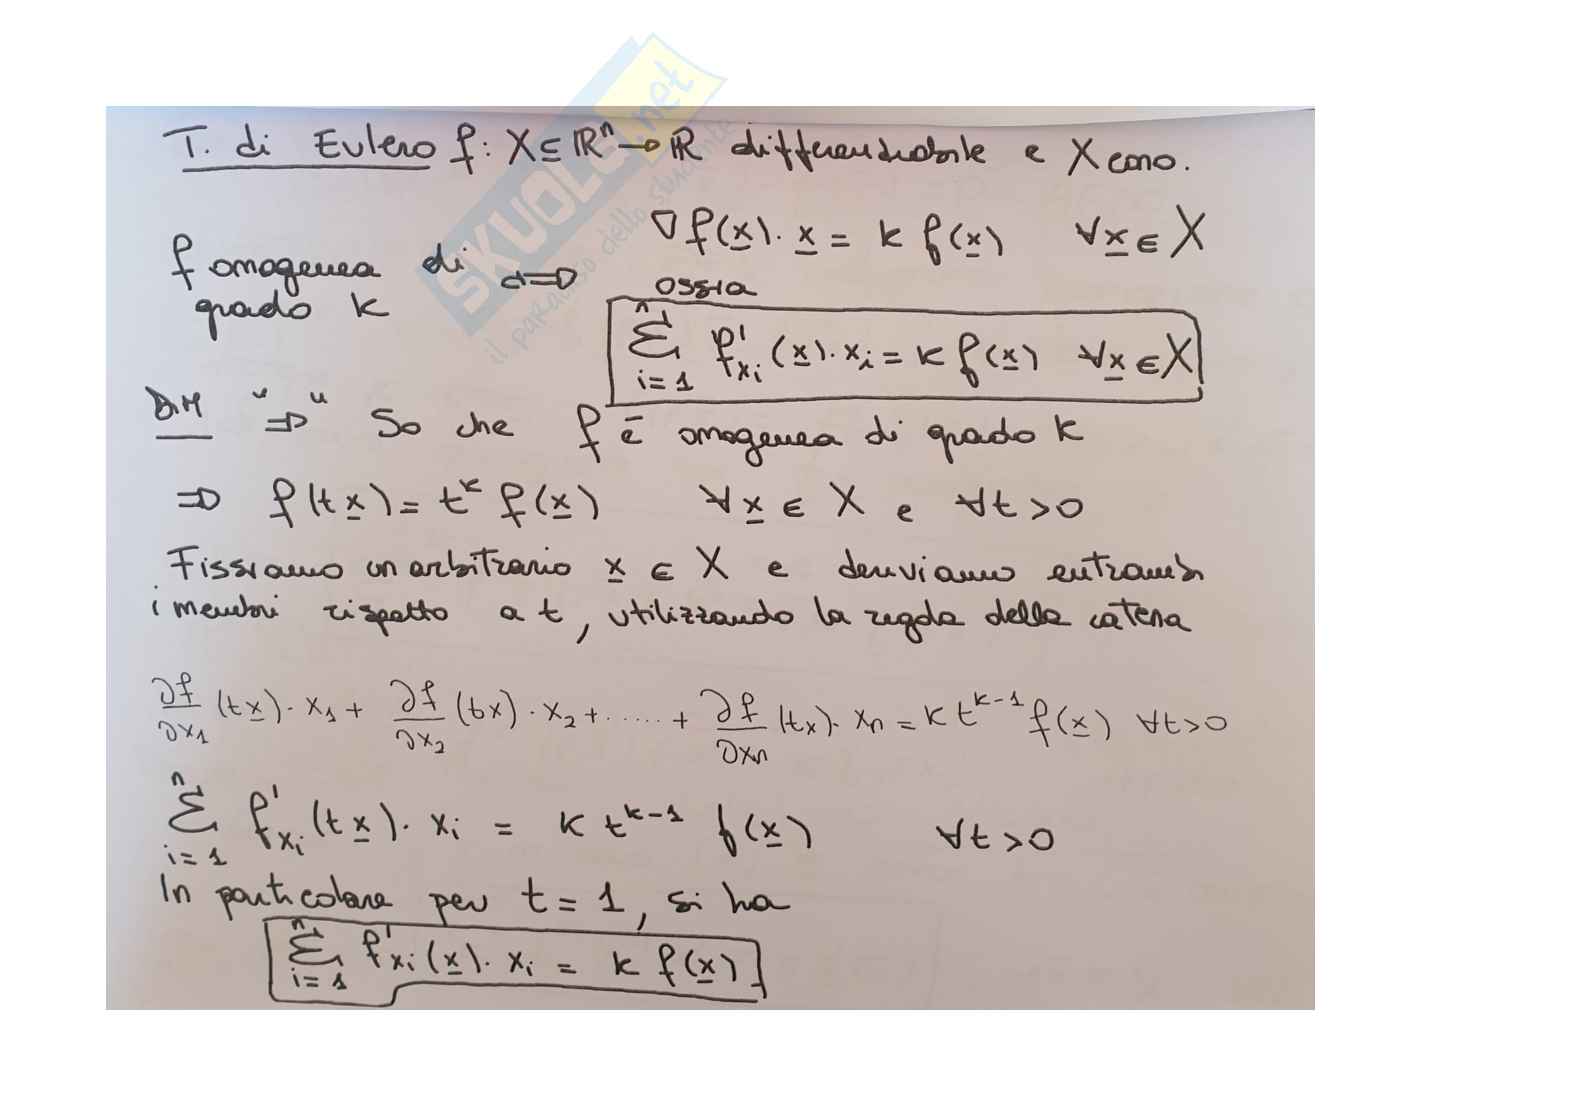 T. di Eulero f: X ⊆ ℝⁿ → ℝ differenziabile e X cono.
f omogenea di grado k ⇔ ∇f(x)·x = k f(x) ∀x ∈ X
ossia
∑ⁿᵢ₌₁ f'xᵢ (x)·xᵢ = k f(x) ∀x ∈ X
DIM "⇒" So che f è omogenea di grado k
⇒ f(tx) = tᵏ f(x) ∀x ∈ X e ∀t > 0
Fissiamo un arbitrario x ∈ X e deriviamo entrambi
i membri rispetto a t, utilizzando la regola della catena
∂f/∂x₁ (tx)·x₁ + ∂f/∂x₂ (tx)·x₂ + ..... + ∂f/∂xₙ (tx)·xₙ = k tᵏ⁻¹ f(x) ∀t>0
∑ⁿᵢ₌₁ f'xᵢ (tx)·xᵢ = k tᵏ⁻¹ f(x) ∀t > 0
In particolare per t = 1, si ha
∑ⁿᵢ₌₁ f'xᵢ (x)·xᵢ = k f(x)
SKUOLA.net
il paradiso dello studente